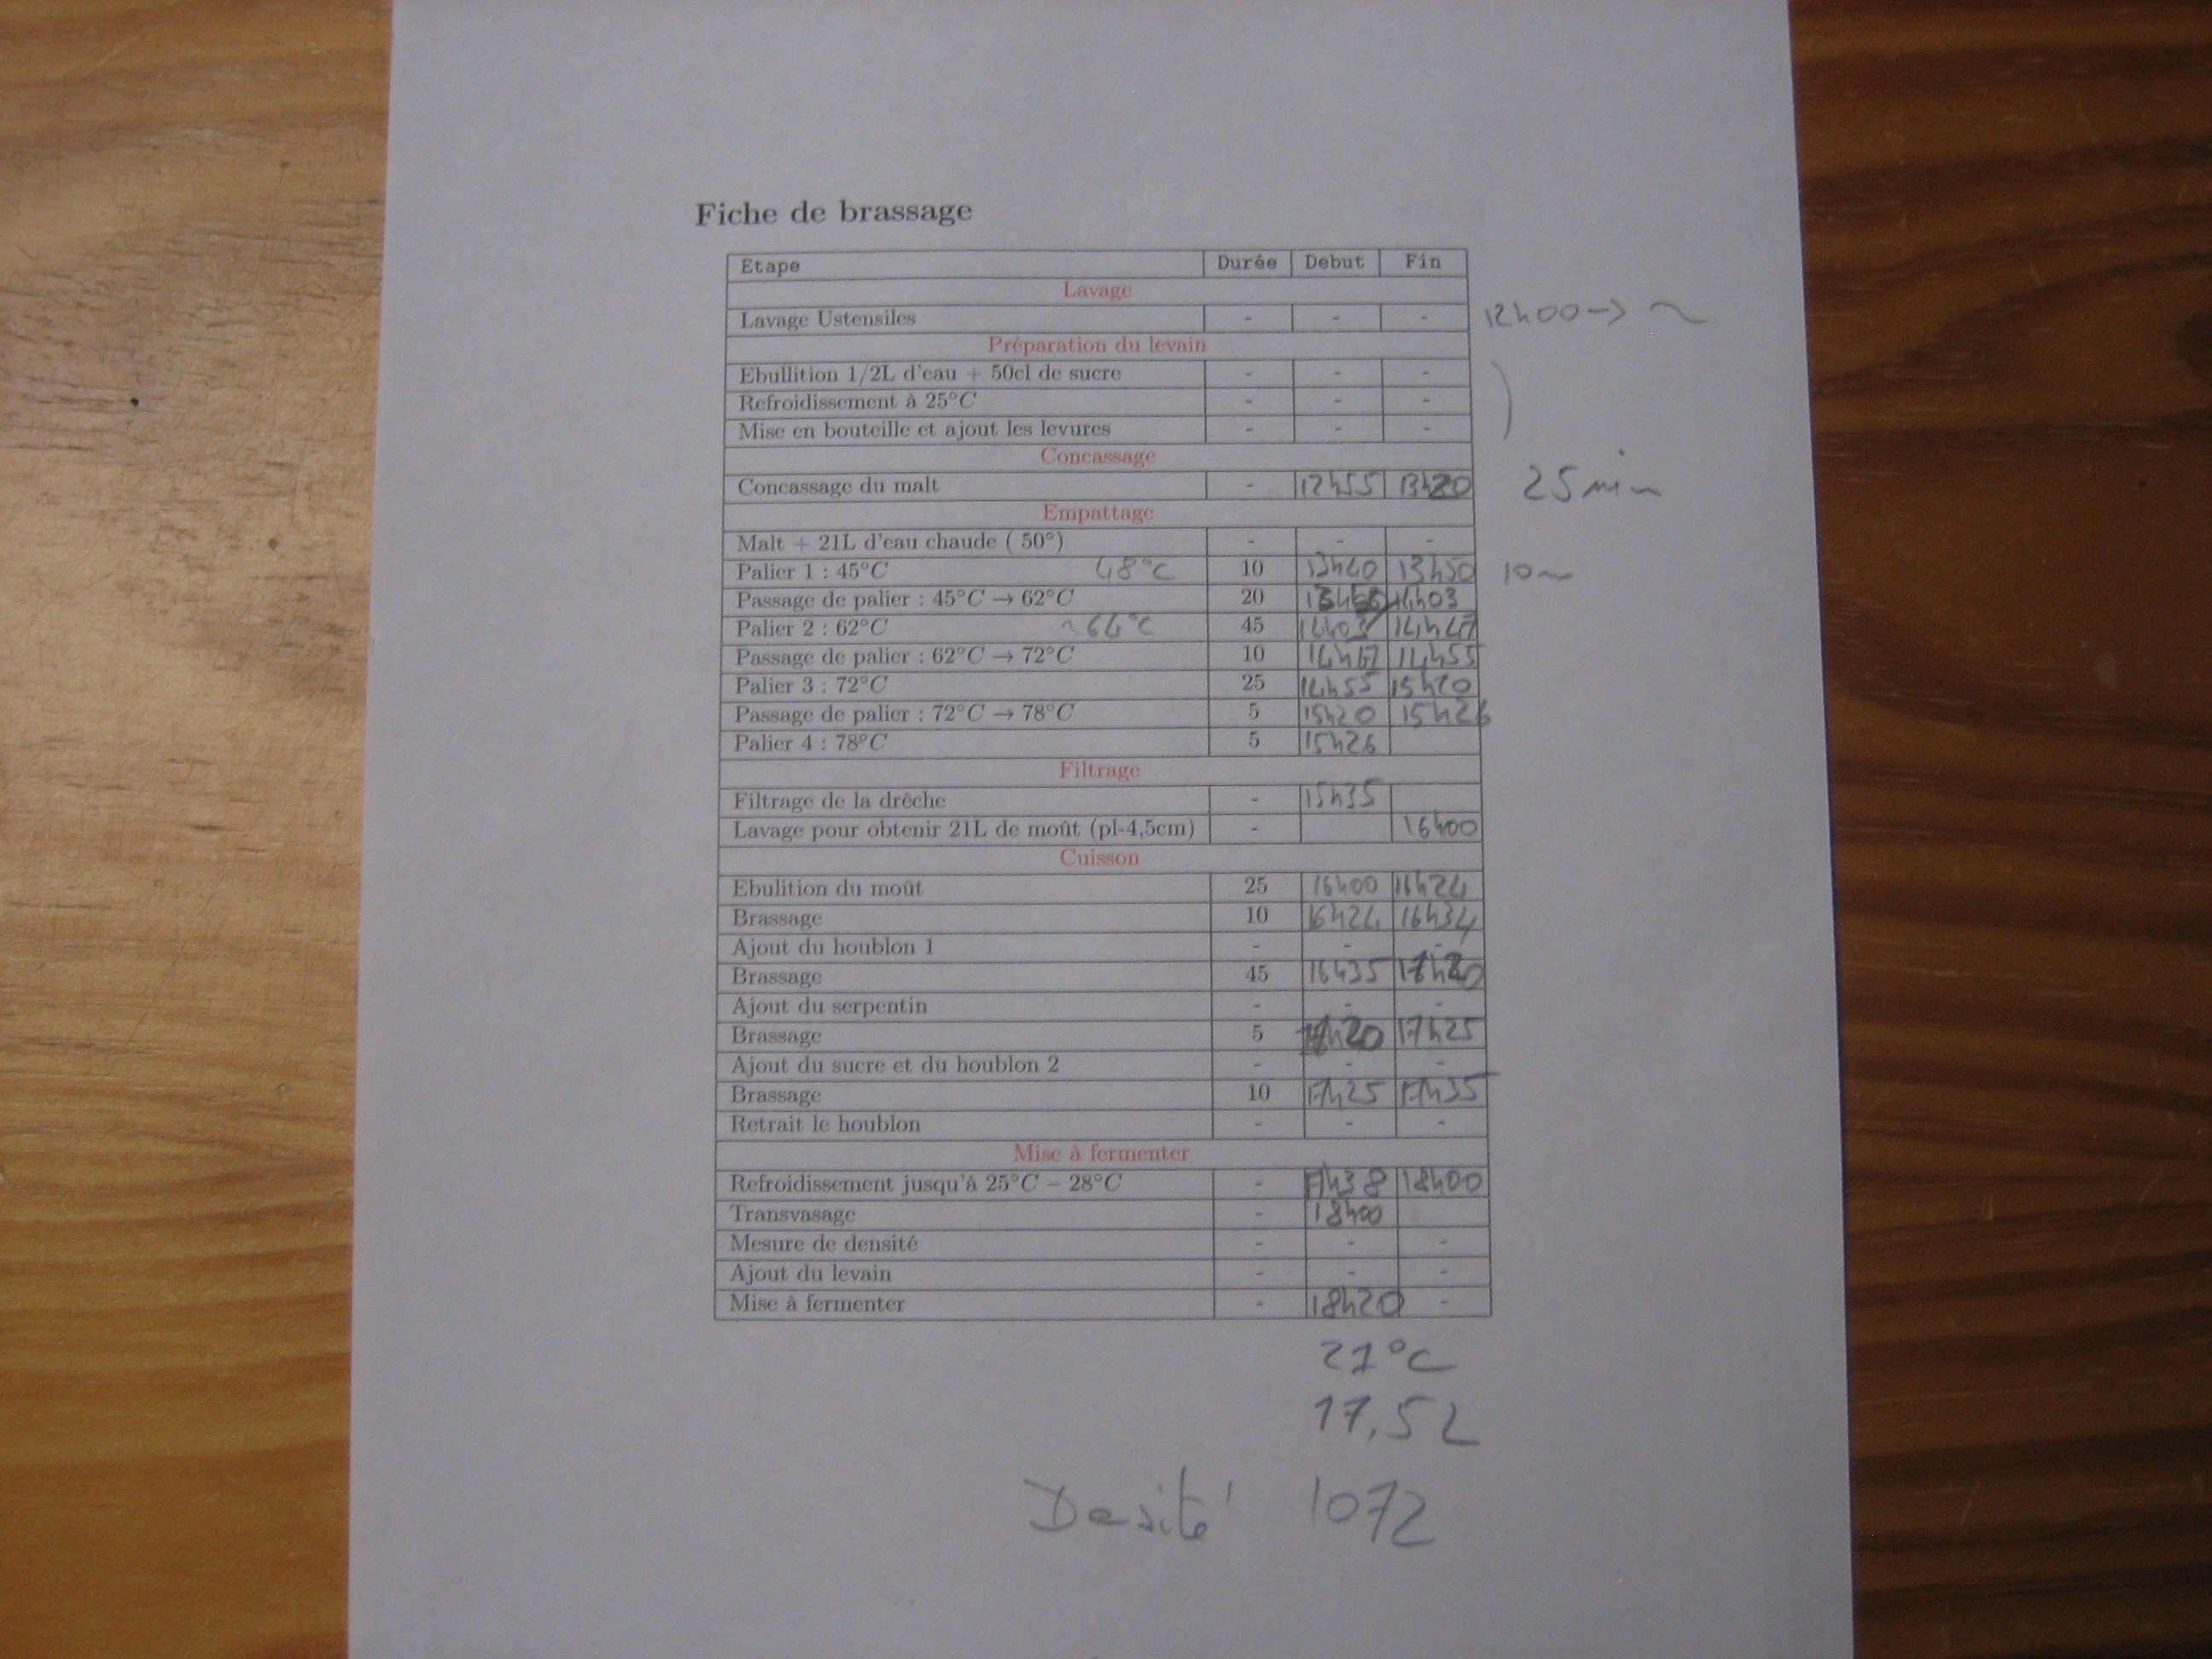 Fiche de brassage
Etape Durée Debut Fin
Lavage
Lavage Ustensiles - - - 12h00 -> ~
Préparation du levain
Ebullition 1/2L d'eau + 50cl de sucre - - -
Refroidissement à 25°C - - -
Mise en bouteille et ajout les levures - - -
Concassage
Concassage du malt - 12h55 13h20 25 min
Empattage
Malt + 21L d'eau chaude ( 50°) - - -
Palier 1 : 45°C 48°C 10 13h40 13h50 10~
Passage de palier : 45°C → 62°C 20 14h03
Palier 2 : 62°C ~64°C 45 14h03 14h47
Passage de palier : 62°C → 72°C 10 14h47 14h55
Palier 3 : 72°C 25 14h55 15h20
Passage de palier : 72°C → 78°C 5 15h20 15h26
Palier 4 : 78°C 5 15h26
Filtrage
Filtrage de la drêche - 15h35
Lavage pour obtenir 21L de moût (pl-4,5cm) - 16h00
Cuisson
Ebulition du moût 25 16h00 16h24
Brassage 10 16h24 16h34
Ajout du houblon 1 - - -
Brassage 45 16h35 17h20
Ajout du serpentin - - -
Brassage 5 17h20 17h25
Ajout du sucre et du houblon 2 - - -
Brassage 10 17h25 17h35
Retrait le houblon - - -
Mise à fermenter
Refroidissement jusqu'à 25°C – 28°C - 17h38 18h00
Transvasage - 18h00
Mesure de densité - - -
Ajout du levain - - -
Mise à fermenter - 18h20 -
21°C
17,5L
Desité 1072